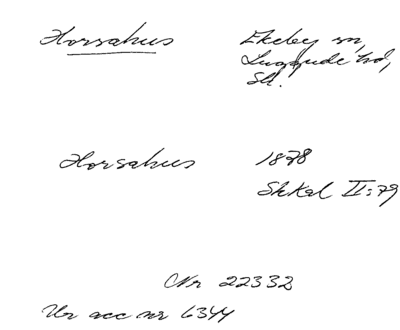 Horsahus Ekeby sn,
Luggude hd,
Sk.
Horsahus 1878
SkKal II:79
Nr 22332
Ur acc nr 6344